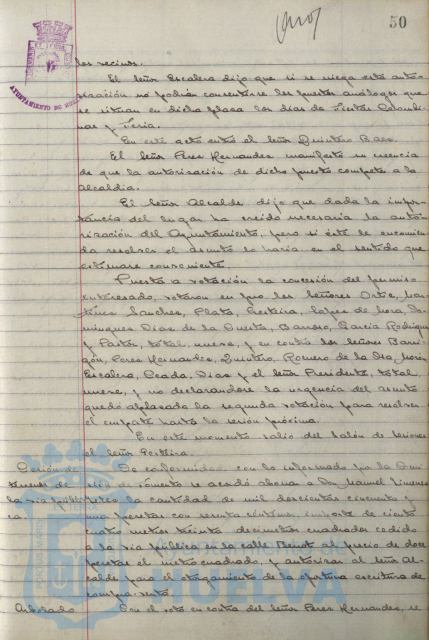 50
los vecinos.
El señor Escalera dijo que si se niega esta auto-
rización no podrán consentirse los puestos análogos que
se sitúan en dicha plaza los días de Fiestas Colombi-
nas y Feria.
En este acto entró el señor Quintero Baez.
El señor Perez Hernandez manifestó su creencia
de que la autorización de dicho puesto compete a la
Alcaldía.
El señor Alcalde dijo que dada la impor-
tancia del lugar ha creido necesaria la auto-
rización del Ayuntamiento, pero si éste le encomien-
da resolver el asunto lo haría en el sentido que
estimare conveniente.
Puesta a votación la concesión del permiso
interesado, votaron en pro los señores Ortiz, Mar-
tinez Sanchez, Plata, Lopez de Mora, Do-
minguez Diaz de la Puerta, Barroso, Garcia Rodriguez
y Pastor, total, nueve, y en contra los señores Barri-
gón, Perez Hernandez, Quintero, Romero de la Osa,
Escalera, Diaz y el señor Presidente, total,
nueve, y no declarandose la urgencia del asunto
quedó aplazada la segunda votación para resolver
el empate hasta la sesión próxima.
En este momento salió del salón de sesiones
el señor
Cesión de De conformidad con lo informado por la Comi-
terreno de sión de Fomento se acordó abonar a Don Manuel
la vía públi- la cantidad de mil doscientas cincuenta y
ca. una pesetas con sesenta céntimos, importe de ciento
cuatro metros treinta decimetros cuadrados cedido
a la vía pública en la calle Benot al precio de doce
pesetas el metro cuadrado, y autorizar al señor Al-
calde para el otorgamiento de la oportuna escritura de
compra-venta.
Arbolado Con el voto en contra del señor Perez Hernandez, se
AYUNTAMIENTO DE HUELVA
Ayuntamiento de
HUELVA